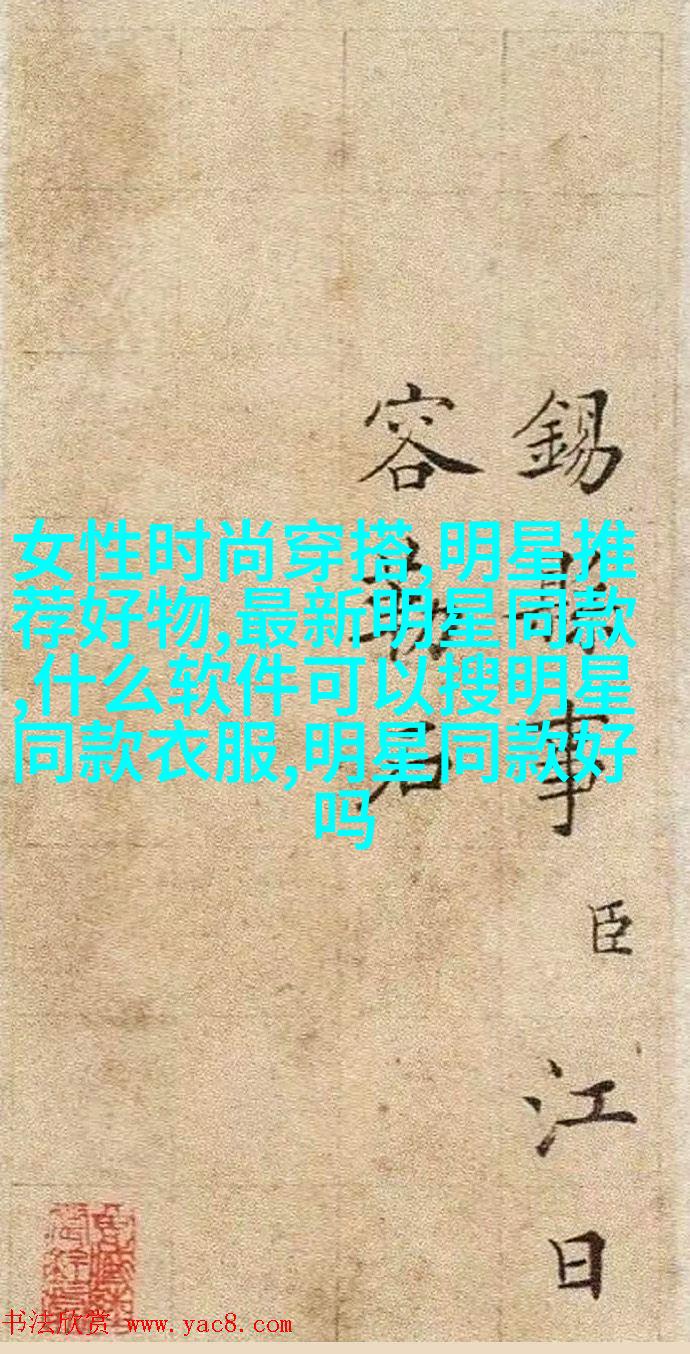 女性时尚穿搭,明星推
荐好物,最新明星同款
,什么软件可以搜明星
同款衣服,明星同款好
吗
錫事臣江日
容
书法欣赏 www.yac8.com